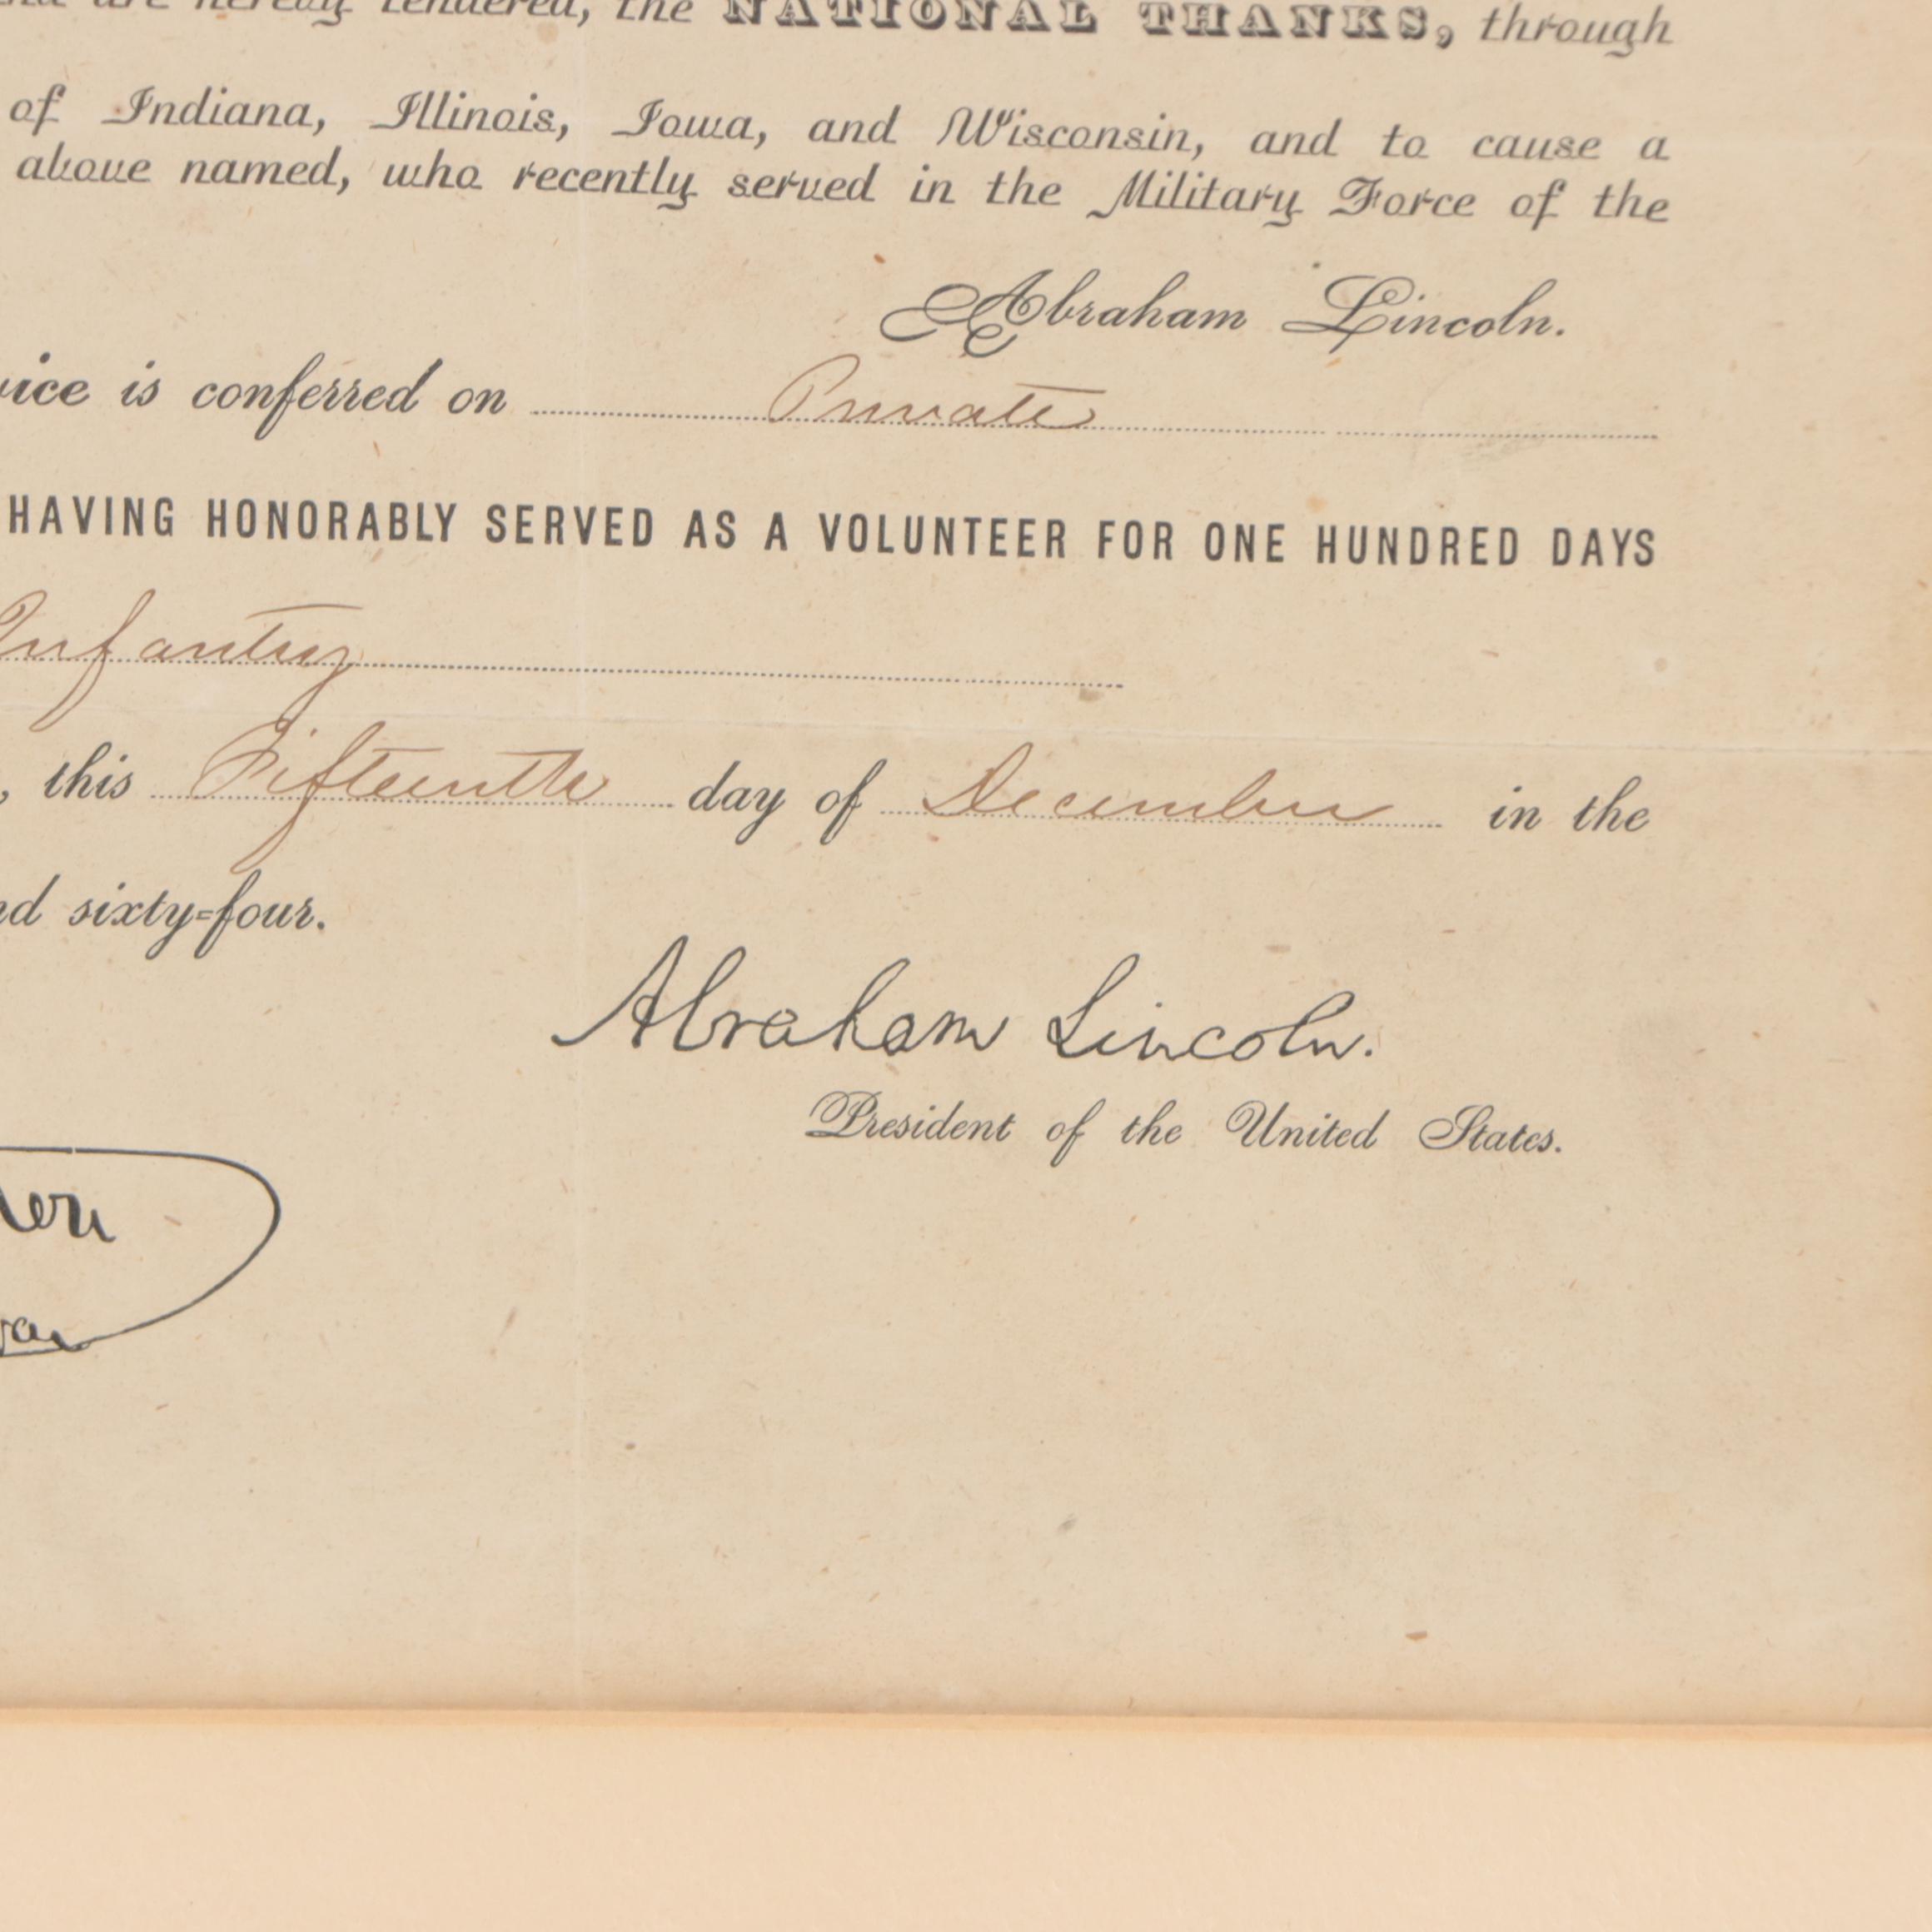 are hereby tendered, the NATIONAL THANKS, through
of Indiana, Illinois, Iowa, and Wisconsin, and to cause a
above named, who recently served in the Military Force of the
Abraham Lincoln.
is conferred on Private
HAVING HONORABLY SERVED AS A VOLUNTEER FOR ONE HUNDRED DAYS
Infantry
, this Fifteenth day of December in the
sixty=four.
Abraham Lincoln.
President of the United States.